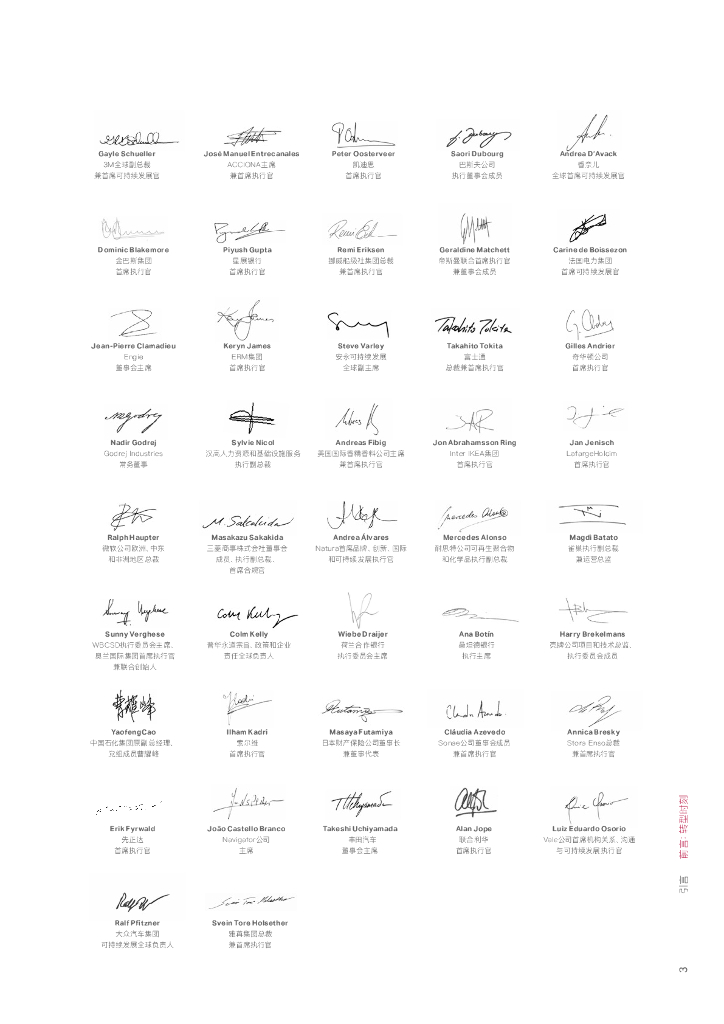 Gayle Schueller
3M全球副总裁
兼首席可持续发展官
José Manuel Entrecanales
ACCIONA主席
兼首席执行官
Peter Oosterveer
凯迪思
首席执行官
Saori Dubourg
巴斯夫公司
执行董事会成员
Andrea D'Avack
香奈儿
全球首席可持续发展官
Dominic Blakemore
金巴斯集团
首席执行官
Piyush Gupta
星展银行
首席执行官
Remi Eriksen
挪威船级社集团总裁
兼首席执行官
Geraldine Matchett
帝斯曼联合首席执行官
兼董事会成员
Carine de Boissezon
法国电力集团
首席可持续发展官
Jean-Pierre Clamadieu
Engie
董事会主席
Keryn James
ERM集团
首席执行官
Steve Varley
安永可持续发展
全球副主席
Takahito Tokita
富士通
总裁兼首席执行官
Gilles Andrier
奇华顿公司
首席执行官
Nadir Godrej
Godrej Industries
常务董事
Sylvie Nicol
汉高人力资源和基础设施服务
执行副总裁
Andreas Fibig
美国国际香精香料公司主席
兼首席执行官
Jon Abrahamsson Ring
Inter IKEA集团
首席执行官
Jan Jenisch
LafargeHolcim
首席执行官
Ralph Haupter
微软公司欧洲、中东
和非洲地区总裁
Masakazu Sakakida
三菱商事株式会社董事会
成员、执行副总裁、
首席合规官
Andrea Álvares
Natura首席品牌、创新、国际
和可持续发展执行官
Mercedes Alonso
耐思特公司可再生聚合物
和化学品执行副总裁
Magdi Batato
雀巢执行副总裁
兼运营总监
Sunny Verghese
WBCSD执行委员会主席、
奥兰国际集团首席执行官
兼联合创始人
Colm Kelly
普华永道宗旨、政策和企业
责任全球负责人
Wiebe Draijer
荷兰合作银行
执行委员会主席
Ana Botín
桑坦德银行
执行主席
Harry Brekelmans
壳牌公司项目和技术总监、
执行委员会成员
曹耀峰
Yaofeng Cao
中国石化集团原副总经理、
党组成员曹耀峰
Ilham Kadri
索尔维
首席执行官
Masaya Futamiya
日本财产保险公司董事长
兼董事代表
Cláudia Azevedo
Sonae公司董事会成员
兼首席执行官
Annica Bresky
Stora Enso总裁
兼首席执行官
Erik Fyrwald
先正达
首席执行官
João Castello Branco
Navigator公司
主席
Takeshi Uchiyamada
丰田汽车
董事会主席
Alan Jope
联合利华
首席执行官
Luiz Eduardo Osorio
Vale公司首席机构关系、沟通
与可持续发展执行官
Ralf Pfitzner
大众汽车集团
可持续发展全球负责人
Svein Tore Holsether
雅苒集团总裁
兼首席执行官
引言 前言：转型时刻
3